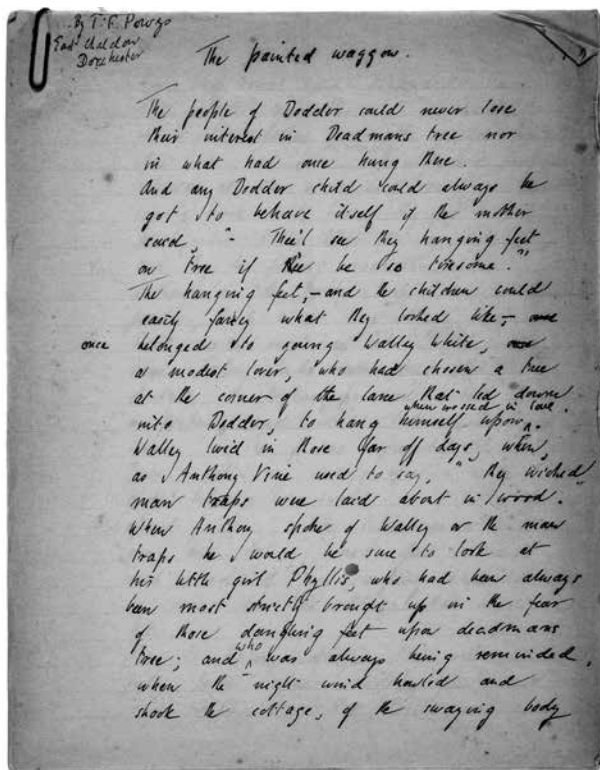 By T. F. Powys
East Chaldon
Dorchester
The painted waggon.
The people of Dodder could never lose
their interest in Deadmans tree nor
in what had once hung there.
And any Dodder child could always be
got to behave itself if the mother
said, "Thee'l see they hanging feet
on tree if thee be so tiresome."
The hanging feet, – and the children could
easily fancy what they looked like, –
once belonged to young Walley White,
a modest lover, who had chosen a tree
at the corner of the lane that led down
into Dodder, to hang himself upon when crossed in love.
Walley lived in those far off days, when,
as Anthony Vine used to say, "they wicked
man traps were laid about in wood."
When Anthony spoke of Walley or the man
traps he would be sure to look at
his little girl Phyllis, who had been always
been most strictly brought up in the fear
of those dangling feet upon deadmans
tree; and who was always being reminded,
when the night wind howled and
shook the cottage, of the swaying body